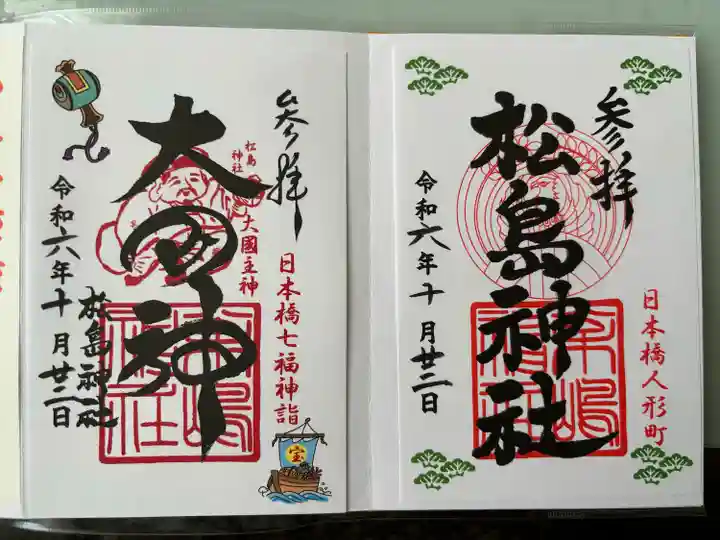 参拝
松島神社
令和六年十月廿二日
日本橋人形町
参拝
松島
神社
大國主神
日本橋七福神詣
大
神
松島神社
令和六年十月廿二日
宝